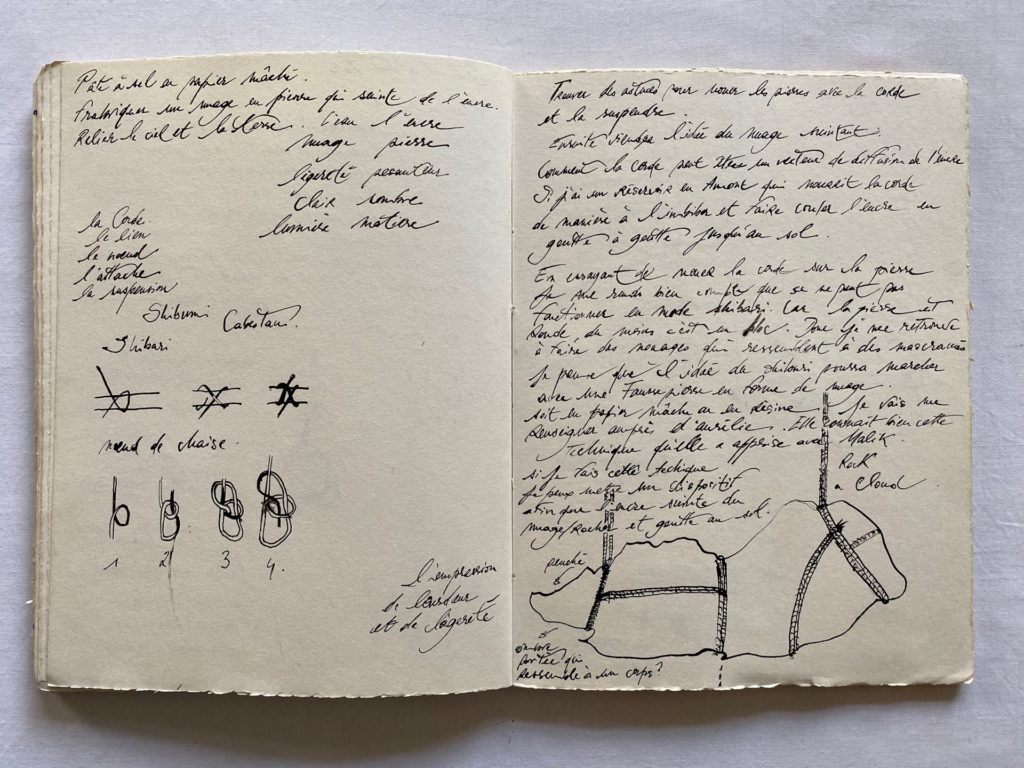 Pâte à sel ou papier mâché.
Fabriquer un nuage en pierre qui suinte de l'encre.
Relier le ciel et la terre. L'eau l'encre
nuage pierre
légereté pesanteur
clair sombre
lumière matière
la Corde.
le lien
le nœud
l'attache
la suspension
Shibumi Cabestan.
Shibari
nœud de chaise.
1 2 3 4.
l'impression
de lourdeur
et de légereté
Trouver des astuces pour nouer les pierres avec la corde
et la suspendre.
Ensuite viendra l'idée du nuage suintant.
Comment la corde peut être un vecteur de diffusion de l'encre
Si j'ai un réservoir en Amont qui nourrit la corde
de manière à l'imbiber et faire couler l'encre en
goutte à goutte jusqu'au sol.
En essayant de nouer la corde sur la pierre
Je me rends bien compte que se ne peut pas
fonctionner en mode shibari. Car la pierre est
ronde du moins c'est un bloc. Donc je me retrouve
à faire des nouages qui ressemblent à des macramés
Je pense que l'idée du Shibari pourra marcher
avec une Fausse pierre en forme de nuage.
soit en papier mâché ou en Résine Je vais me
renseigner auprès d'aurélie. Elle connait bien cette
Technique qu'elle a apprise avec Malik.
si je fais cette techique
Je peux mettre un dispositif
afin que l'encre suinte du
nuage/Rocher et goutte au sol.
Rock
a Cloud
penché
ombre
portée qui
ressemble à un corps?